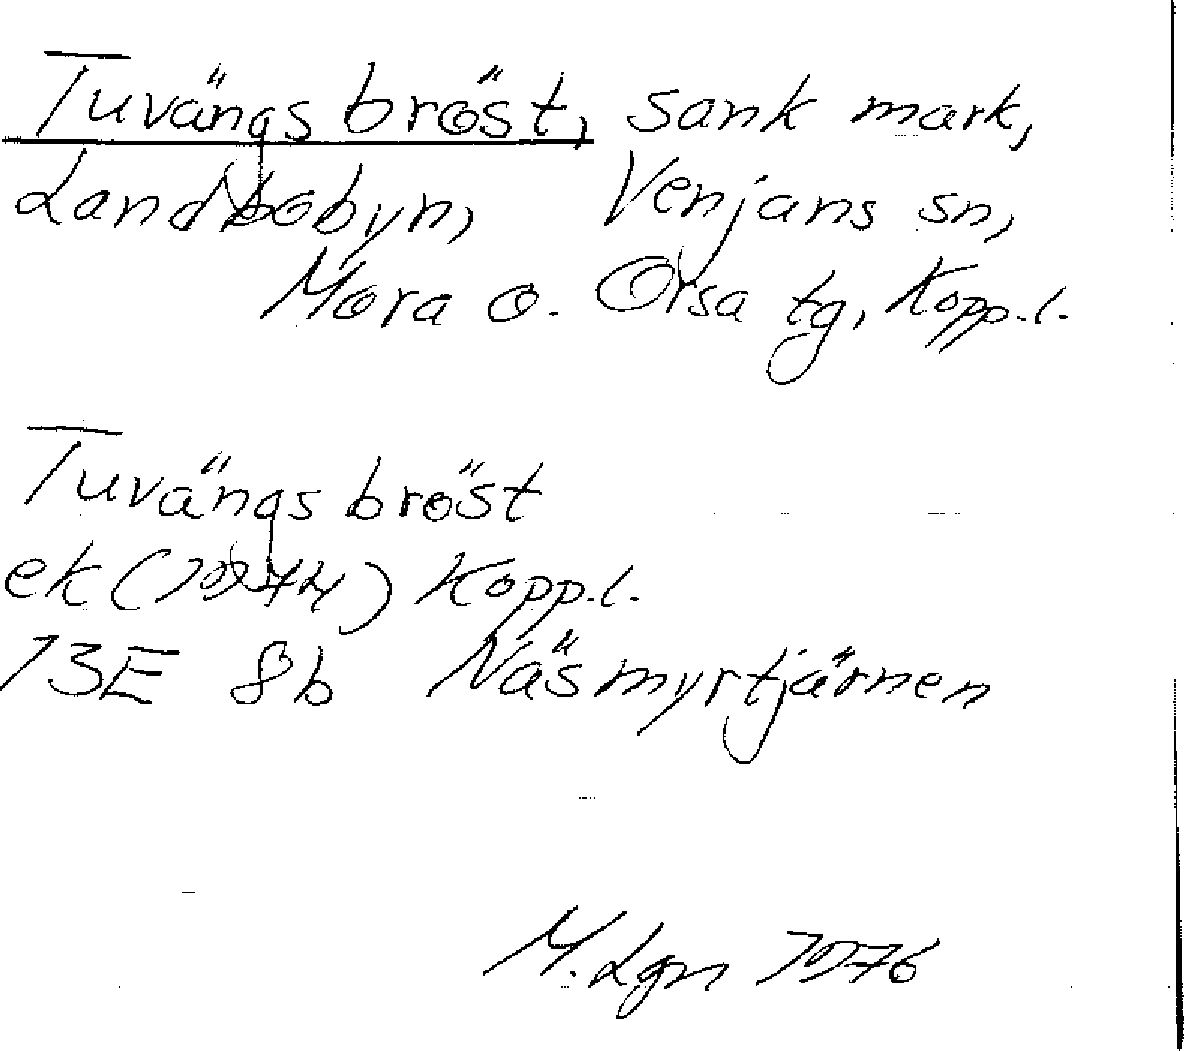 Tuvängs bröst, sank mark,
Landbobyn, Venjans sn,
Mora o. Orsa tg, Kopp.l.
Tuvängs bröst
ek (1974) Kopp.l.
13E 8b Näsmyrtjärnen
M. Lgn 1976